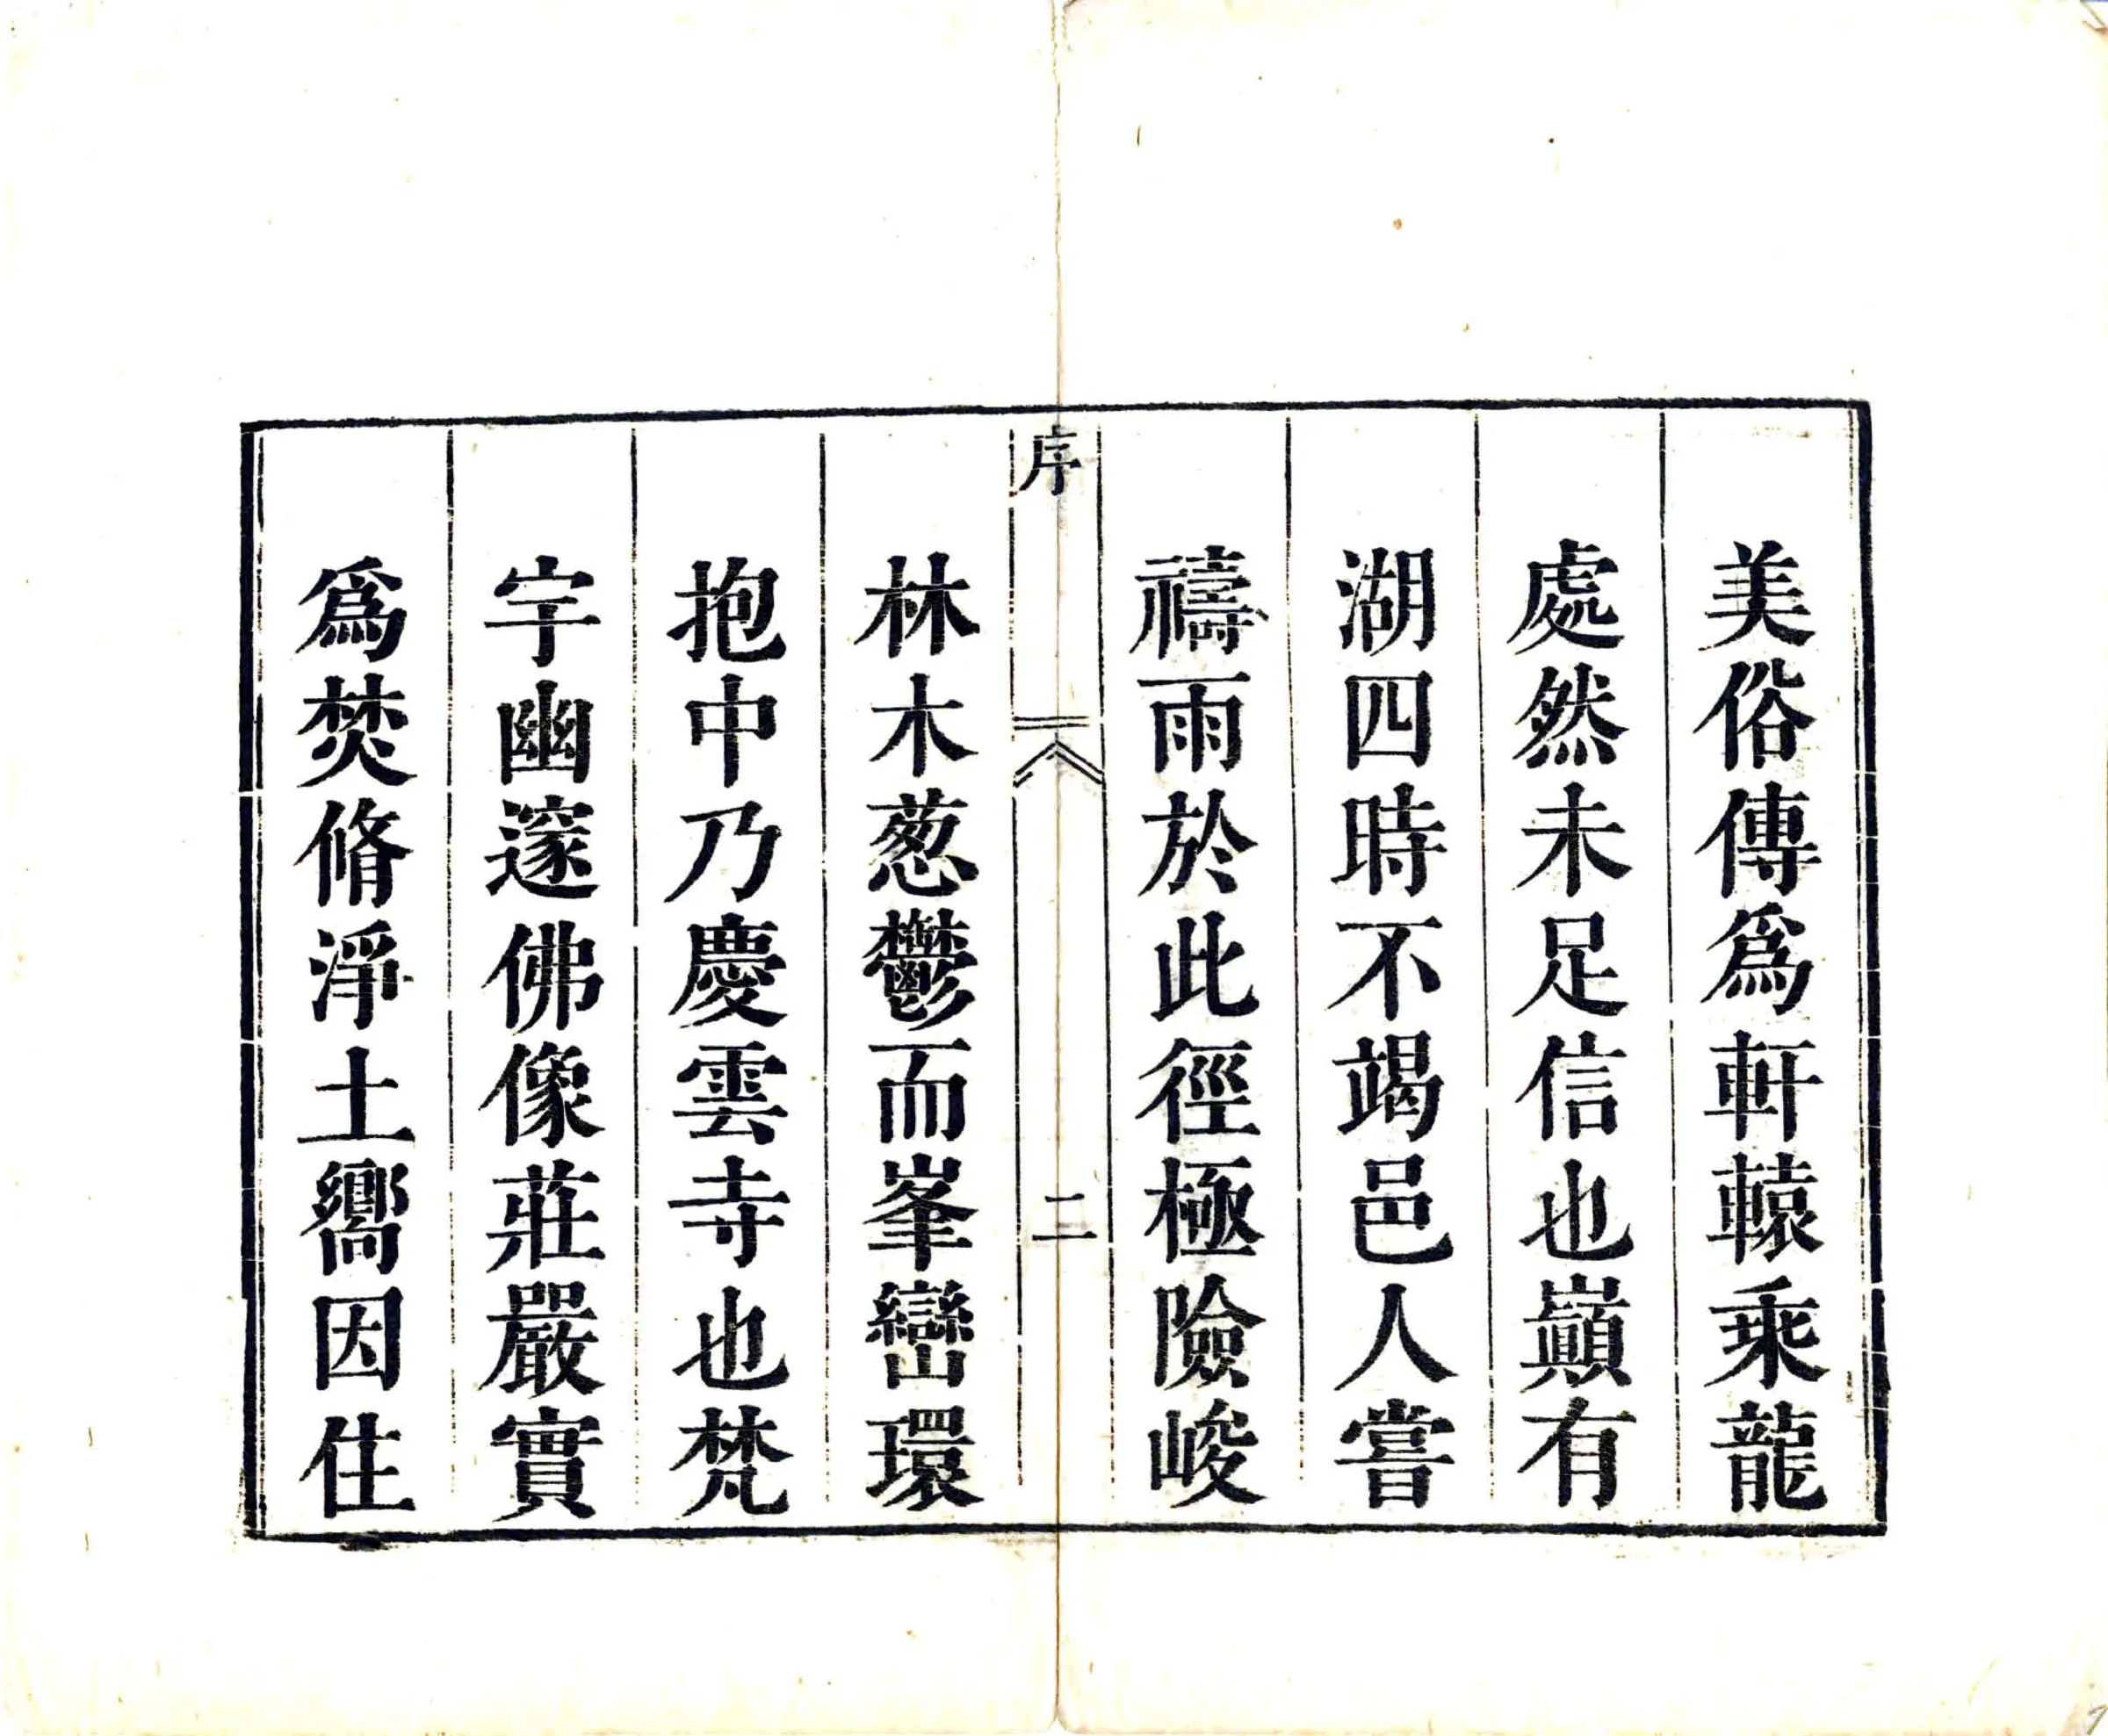 美俗傳爲軒轅乘龍
處然未足信也巔有
湖四時不竭邑人嘗
禱雨於此徑極險峻
序
二
林木葱鬱而峯巒環
抱中乃慶雲寺也梵
宇幽邃佛像莊嚴實
爲焚脩淨土嚮因住